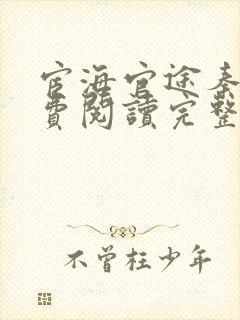 宦海官途秦
費閱讀完整
不曾枉少年